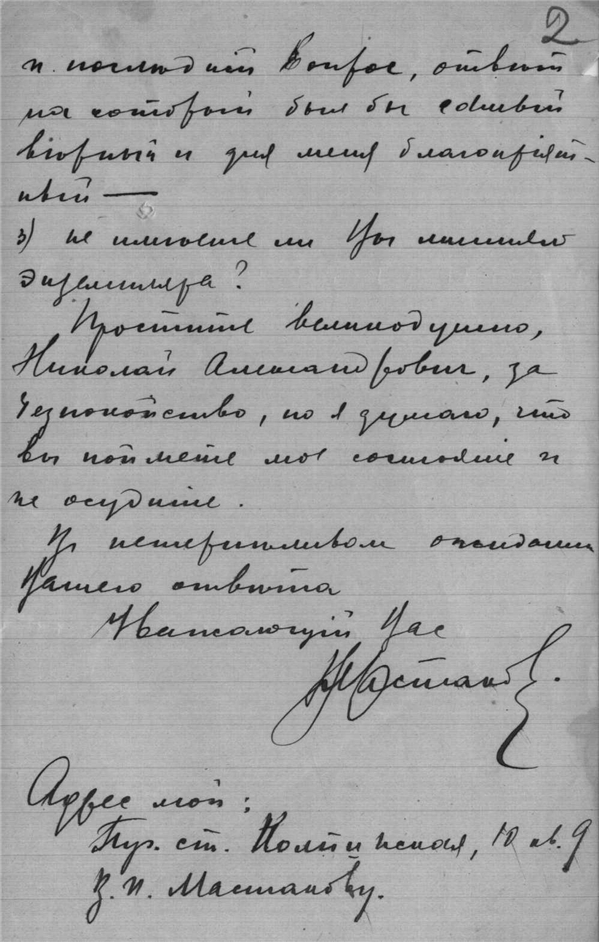 2
и последний вопрос, ответ
на который был бы самый
верный и для меня благоприят-
ный —
3) не имеете ли Вы лишнего
экземпляра?
Простите великодушно,
Николай Александрович, за
безпокойство, но я думаю, что
вы поймете мое состояние и
не осудите.
В нетерпеливом ожидании
Вашего ответа
Уважающий Вас
Адрес мой:
Петр. ст. Колпинская, 10 кв. 9
В. П. Мастакову.